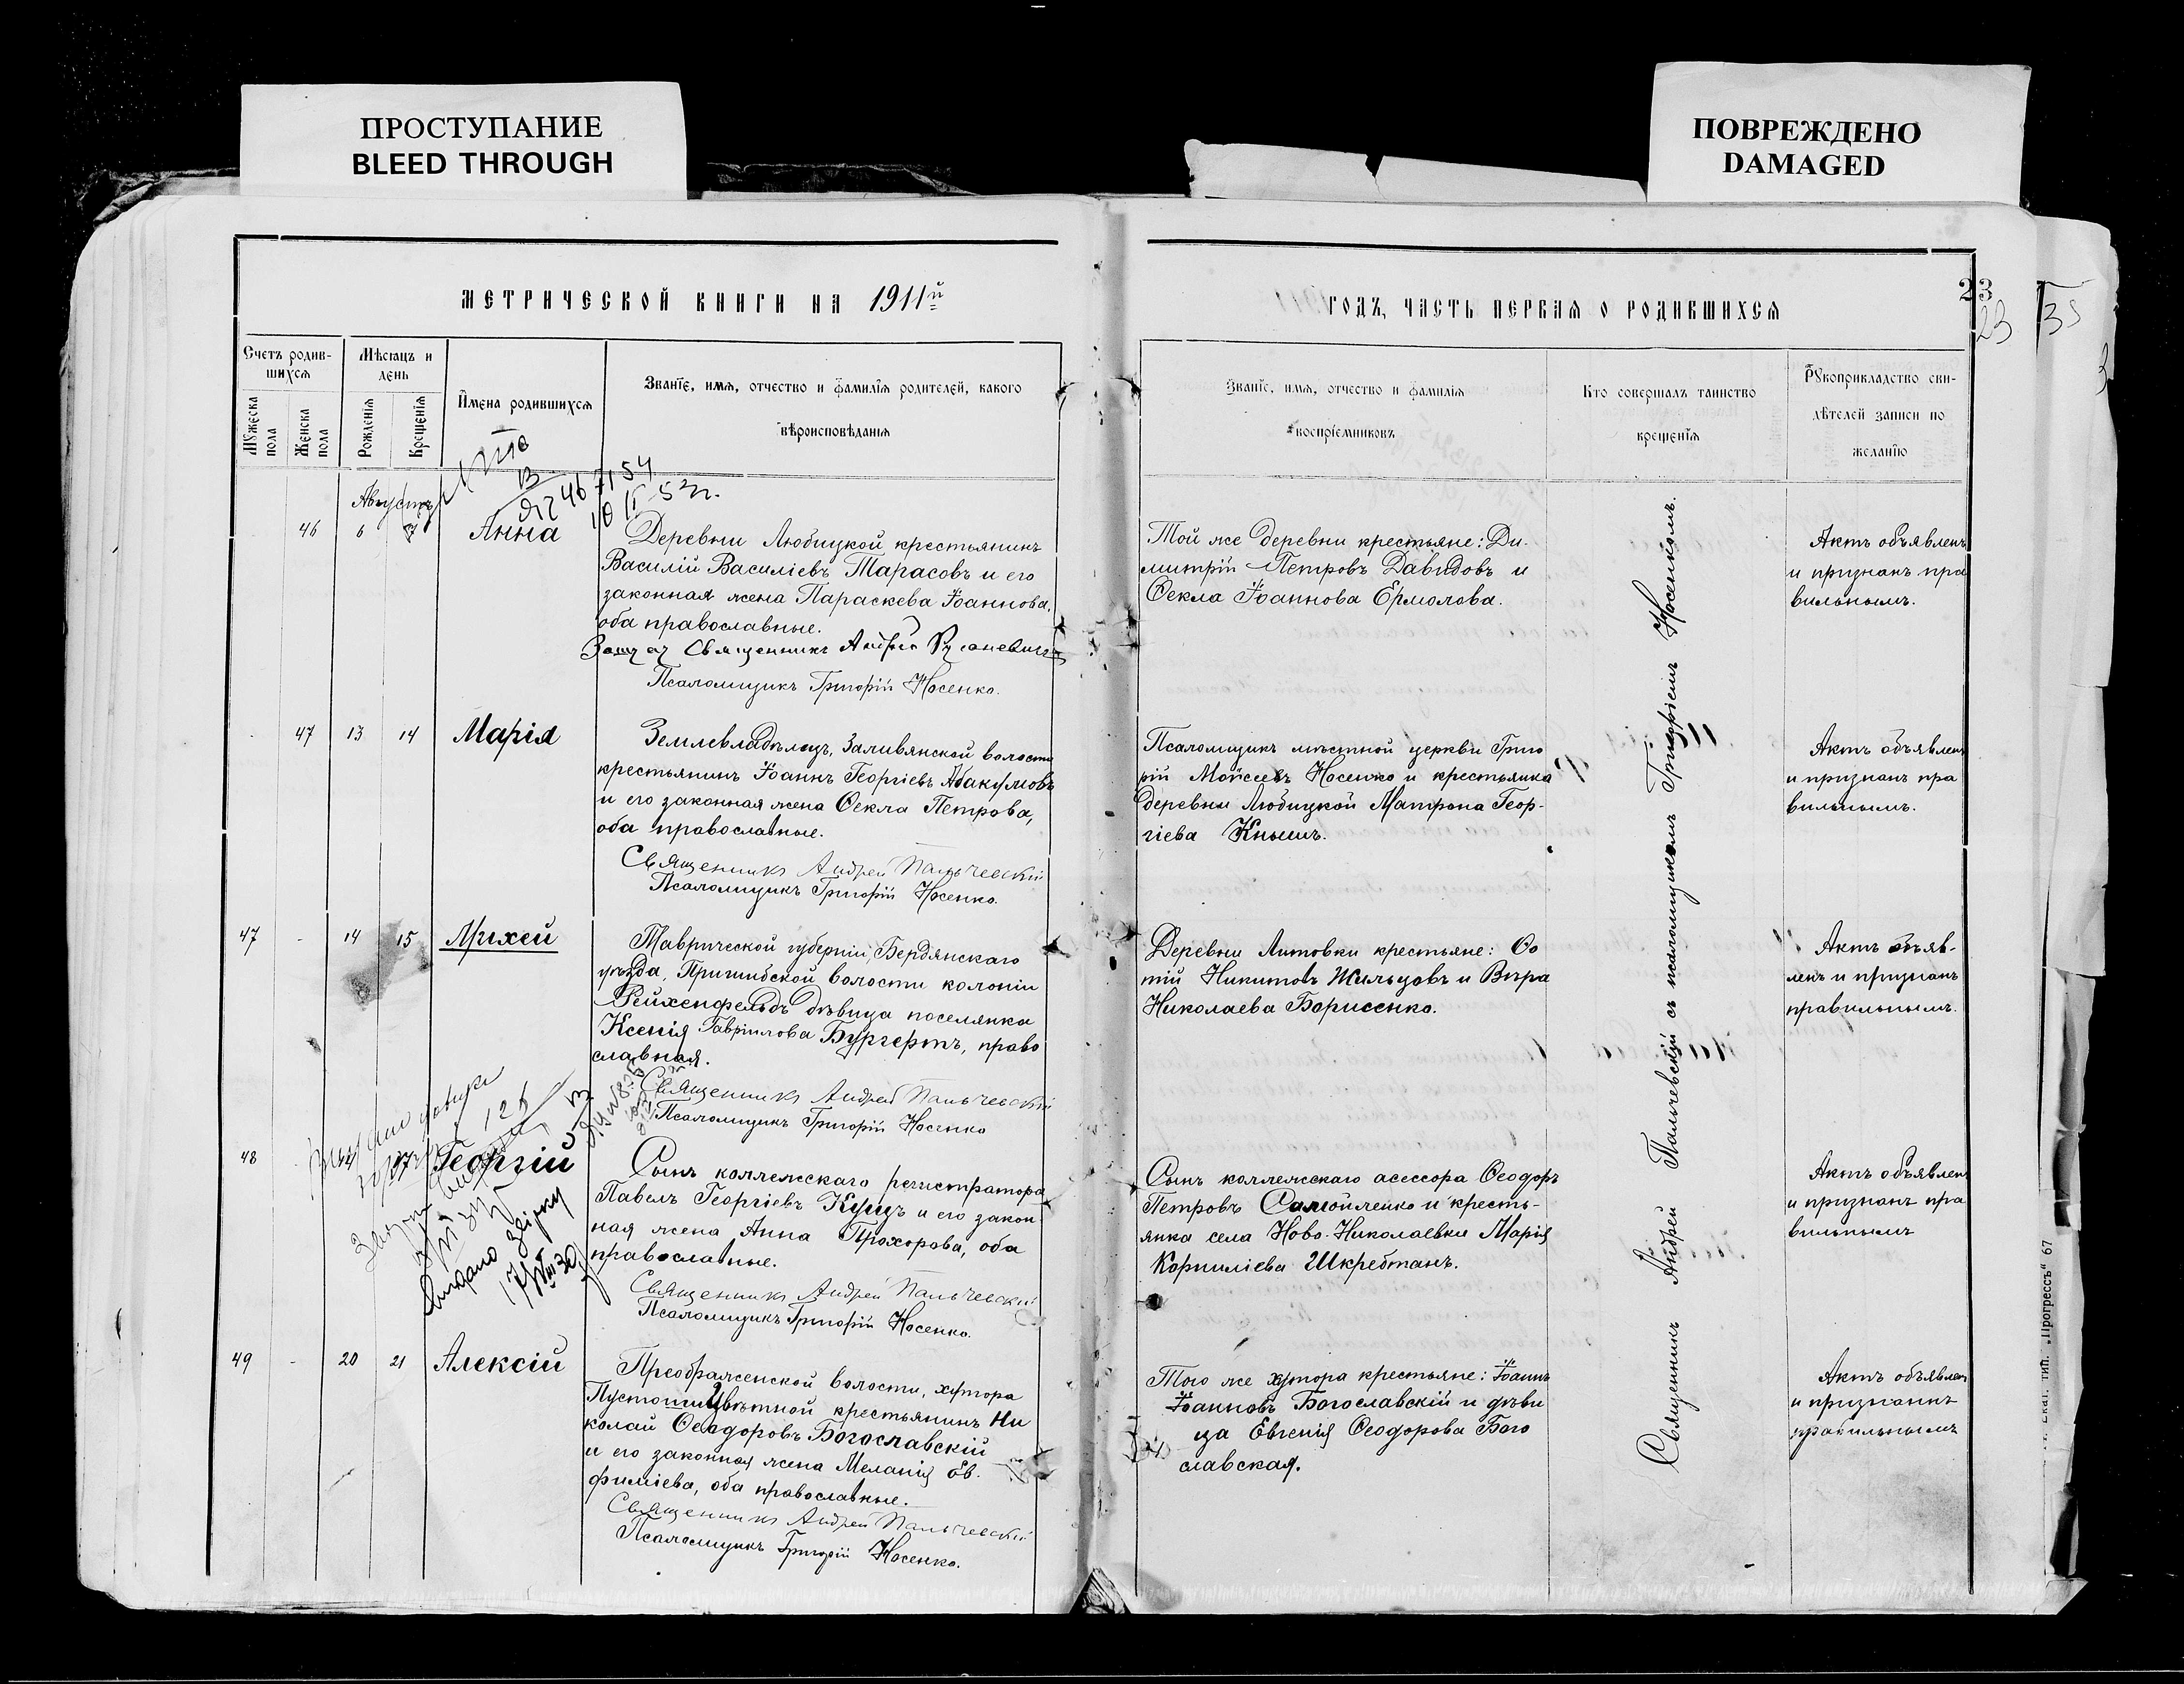 ПРОСТУПАНИЕ
BLEED THROUGH
ПОВРЕЖДЕНО
DAMAGED
МЕТРИЧЕСКОЙ КНИГИ НА 1911й
Счетъ родив-
шихся
Мужеска
пола
Женска
пола
Мѣсяцъ и
день
Рожденія
Крещенія
Имена родившихся
Званіе, имя, отчество и фамилія родителей, какого
вѣроисповѣданія
Августъ
46 6 7 Анна
Деревни Любицкой крестьянинъ
Василій Василіевъ Тарасовъ и его
законная жена Параскева Іоаннова,
оба православные.
Священникъ
Псаломщикъ Григорій Носенко.
47 13 14 Марія
Землевладѣлецъ, Заливянской волости
крестьянинъ Іоаннъ Георгіевъ Абакумовъ
и его законная жена Ѳекла Петрова,
оба православные.
Священникъ Андрей Пальчевскій
Псаломщикъ Григорій Носенко.
47 - 14 15 Михей
Таврической губерніи, Бердянскаго
уѣзда, Пришибской волости колоніи
Рейхенфельдъ дѣвица поселянка
Ксенія Гавріилова Бургертъ, право
славная.
Священникъ Андрей Пальчевскій
Псаломщикъ Григорій Носенко
48 Георгій
Сынъ коллежскаго регистратора
Павелъ Георгіевъ Куцъ и его закон
ная жена Анна Прохорова, оба
православные.
Священникъ Андрей Пальчевскій
Псаломщикъ Григорій Носенко.
49 - 20 21 Алексій
Преображенской волости, хутора
крестьянинъ Ни
колай Ѳеодоровъ Богославскій
и его законная жена Меланія Ев.
фиміева, оба православные.
Священникъ Андрей Пальчевскій
Псаломщикъ Григорій Носенко.
ГОДЪ, ЧАСТЬ ПЕРВАЯ О РОДИВШИХСЯ
23
23
35
Званіе, имя, отчество и фамилія
воспріемниковъ
Кто совершалъ таинство
крещенія
Рукоприкладство сви-
дѣтелей записи по
желанію
Той же деревни крестьяне: Ди-
митрій Петровъ Давидовъ и
Ѳекла Іоаннова Ермолова.
Актъ объявленъ
и признанъ пра
вильнымъ.
Псаломщикъ мѣстной церкви Григо
рій Моисеевъ Носенко и крестьянка
деревни Любицкой Матрона Геор-
гіева Кнышъ.
Актъ объявленъ
и признанъ пра
вильнымъ.
Деревни Литовки крестьяне: Ѳо
тій Никитовъ Жильцовъ и Вѣра
Николаева Борисенко.
Актъ объяв-
ленъ и признанъ
правильнымъ.
Сынъ коллежскаго асессора Ѳеодоръ
Петровъ Самойленко и кресть-
янка села Ново-Николаевки Марія
Корниліева Шкребтанъ.
Актъ объявленъ
и признанъ пра
вильнымъ
Того же хутора крестьяне: Іоаннъ
Іоанновъ Богославскій и дѣви
ца Евгенія Ѳеодорова Бого
славская.
Актъ объявленъ
и признанъ
правильнымъ
Священникъ Андрей Пальчевскій съ псаломщикомъ Григоріемъ Носенкомъ.
Екат. тип. „Прогрессъ“ 67